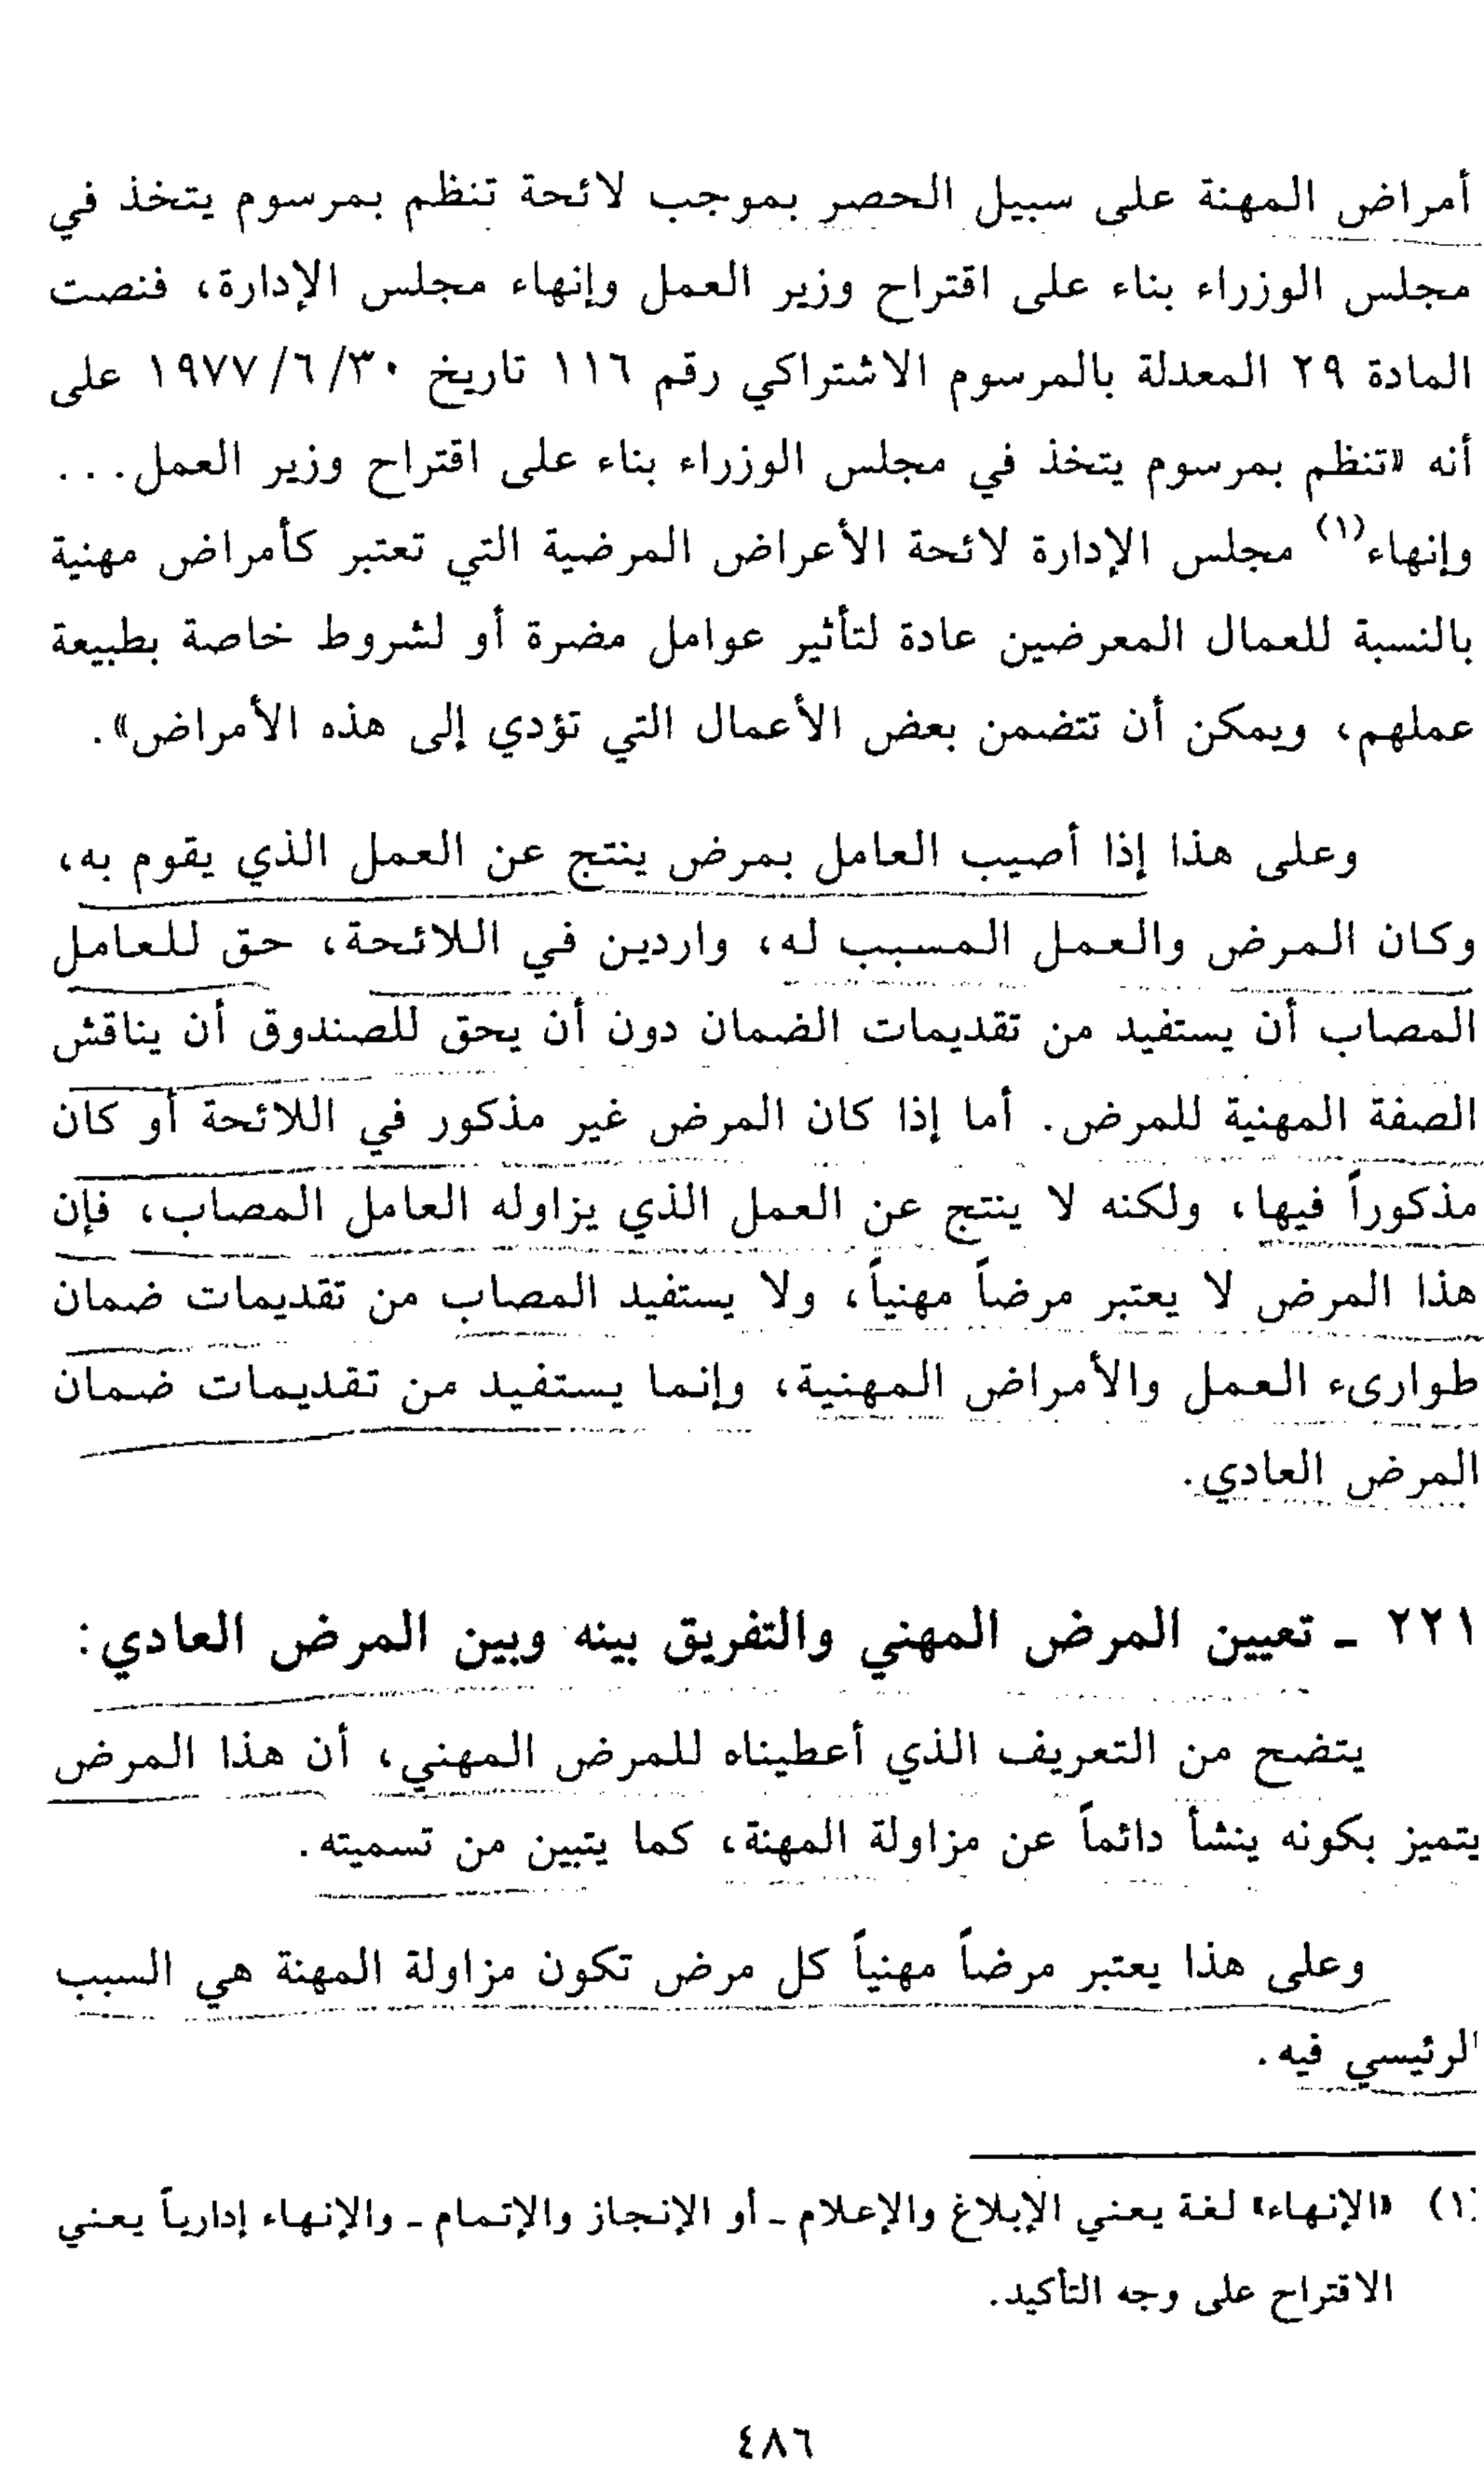 أمراض المهنة على سبيل الحصر بموجب لائحة تنظم بمرسوم يتخذ في
مجلس الوزراء بناء على اقتراح وزير العمل وإنهاء مجلس الإدارة، فنصت
المادة ٢٩ المعدلة بالمرسوم الاشتراكي رقم ١١٦ تاريخ ٣٠/٦/١٩٧٧ على
أنه «تنظم بمرسوم يتخذ في مجلس الوزراء بناء على اقتراح وزير العمل...
وإنهاء(١) مجلس الإدارة لائحة الأعراض المرضية التي تعتبر كأمراض مهنية
بالنسبة للعمال المعرضين عادة لتأثير عوامل مضرة أو لشروط خاصة بطبيعة
عملهم، ويمكن أن تتضمن بعض الأعمال التي تؤدي إلى هذه الأمراض».
وعلى هذا إذا أصيب العامل بمرض ينتج عن العمل الذي يقوم به،
وكان المرض والعمل المسبب له، واردين في اللائحة، حق للعامل
المصاب أن يستفيد من تقديمات الضمان دون أن يحق للصندوق أن يناقش
الصفة المهنية للمرض. أما إذا كان المرض غير مذكور في اللائحة أو كان
مذكوراً فيها، ولكنه لا ينتج عن العمل الذي يزاوله العامل المصاب، فإن
هذا المرض لا يعتبر مرضاً مهنياً، ولا يستفيد المصاب من تقديمات ضمان
طوارىء العمل والأمراض المهنية، وإنما يستفيد من تقديمات ضمان
المرض العادي.
٢٢١ ـ تعيين المرض المهني والتفريق بينه وبين المرض العادي:
يتضح من التعريف الذي أعطيناه للمرض المهني، أن هذا المرض
يتميز بكونه ينشأ دائماً عن مزاولة المهنة، كما يتبين من تسميته.
وعلى هذا يعتبر مرضاً مهنياً كل مرض تكون مزاولة المهنة هي السبب
الرئيسي فيه.
(١) «الإنهاء» لغة يعني الإبلاغ والإعلام ـ أو الإنجاز والإتمام ـ والإنهاء إدارياً يعني
الاقتراح على وجه التأكيد.
٤٨٦